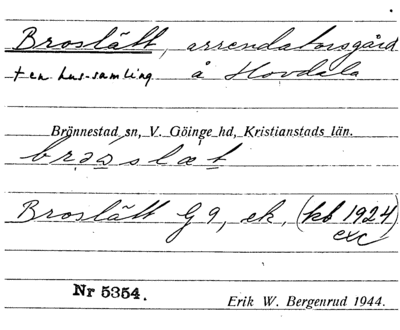 Broslätt, arrendatorsgård
+ en hus-samling å Hovdala
Brönnestad sn, V. Göinge hd, Kristianstads län.
Broslätt G 9, ek. (kb 1924)
exc
Nr 5354.
Erik W. Bergenrud 1944.